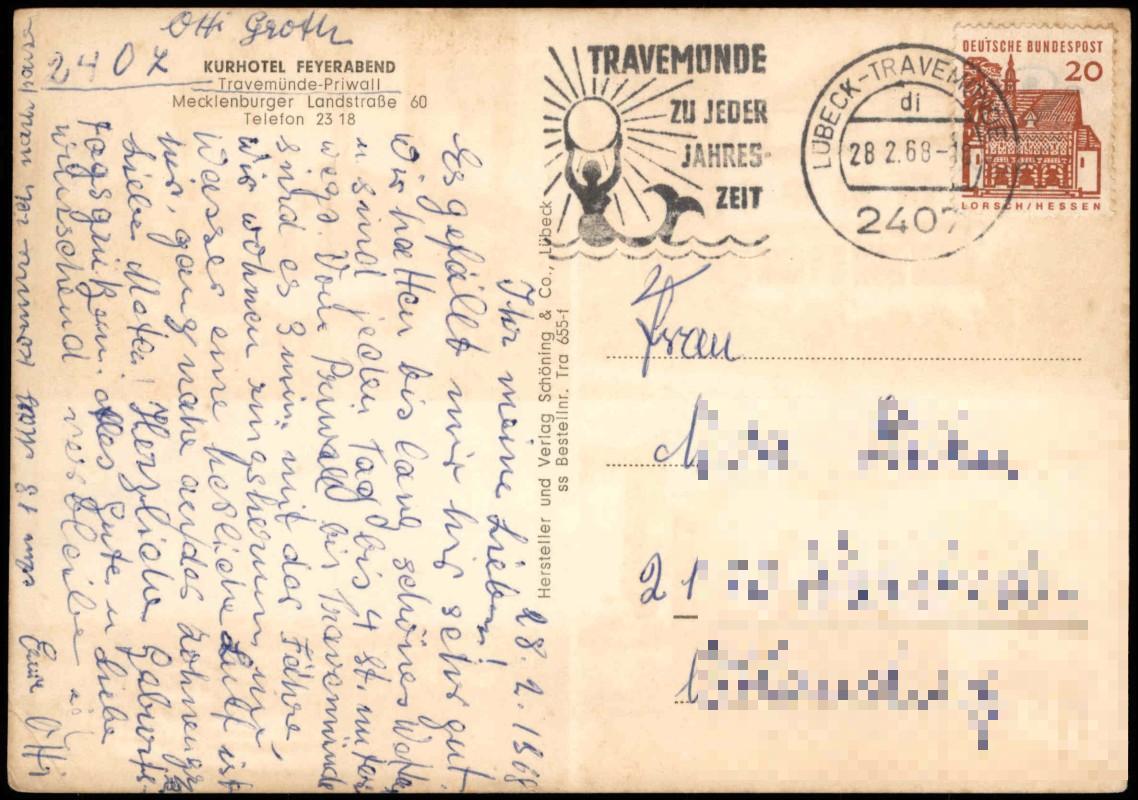 Otti Groth
2407
KURHOTEL FEYERABEND
Travemünde-Priwall
Mecklenburger Landstraße 60
Telefon 23 18
28.2.1968
Ihr meine Lieben!
Es gefällt mir hir sehr gut.
Wir hatten bis lang schönes Wetter
u sind jeden Tag bis 4 St. unter
wegs. Vom Priwall bis Travemünde
sind es 3 min mit der Fähre,
wir wohnen ringsherum nur
Wasser eine herliche Luft ist
hir, ganz nahe an der Zohnengr
Liebe Herzliche Geburts-
tagsgrüße alles Gute u Liebe
wünschend verbleibe ich
Eure Otti
Hersteller und Verlag Schöning & Co., Lübeck
ss Bestellnr. Tra 655-f
TRAVEMÜNDE
ZU JEDER
JAHRES-
ZEIT
LÜBECK-TRAVEMÜNDE
di
28 2.68-1
2407
DEUTSCHE BUNDESPOST
20
LORSCH/HESSEN
Frau
21